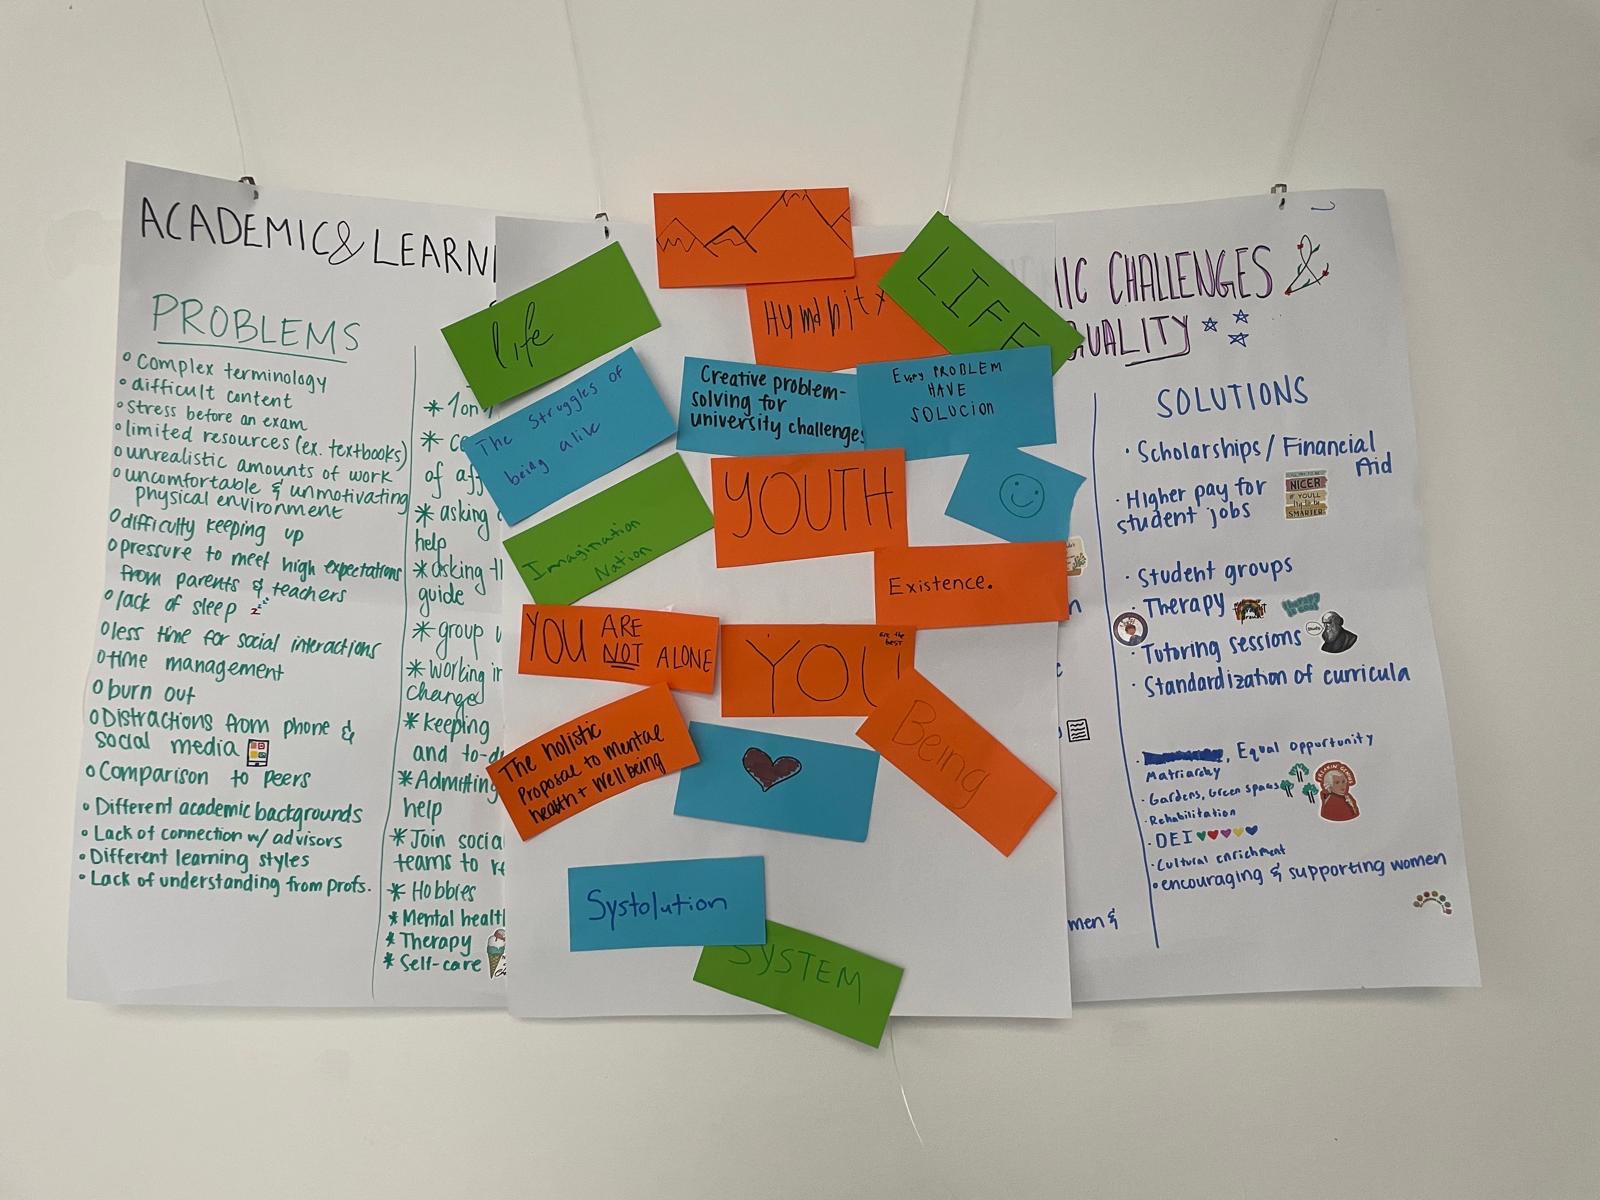 ACADEMIC & LEARNI
PROBLEMS
Complex terminology
difficult content
Stress before an exam
limited resources (ex. textbooks)
unrealistic amounts of work
uncomfortable & unmotivating
physical environment
difficulty keeping up
pressure to meet high expectations
from parents & teachers
lack of sleep
less time for social interactions
time management
burn out
Distractions from phone &
social media
Comparison to peers
Different academic backgrounds
Lack of connection w/ advisors
Different learning styles
Lack of understanding from profs.
* 1 on
* co
of af
* asking
help
* asking th
guide
* group
* working in
changed
* keeping
and to-do
* Admitting
help
* Join socia
teams to re
* Hobbies
* Mental healt
* Therapy
* Self-care
life
HUMANITY
LIFE
The struggles of
being alive
Creative problem-
solving for
university challenges
Every PROBLEM
HAVE
SOLUCION
YOUTH
Imagination
Nation
Existence.
YOU ARE
NOT ALONE
YOU
are the
best
The holistic
Proposal to mental
health + well being
Being
Systolution
SYSTEM
MIC CHALLENGES &
QUALITY
SOLUTIONS
· Scholarships / Financial
Aid
· Higher pay for
student jobs
NICER
IF YOU'LL
SMARTER
· Student groups
· Therapy
· Tutoring sessions
· Standardization of curricula
· Equal opportunity
Matriarchy
· Gardens, Green spaces
· Rehabilitation
· DEI
· Cultural enrichment
· encouraging & supporting women
men &